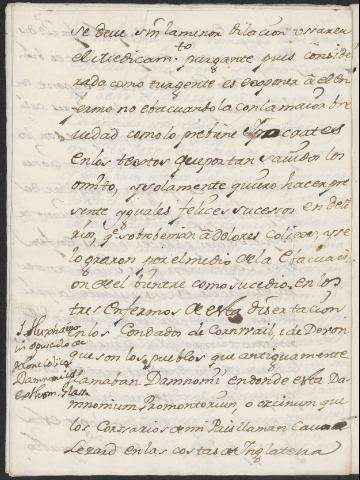 se deve sin la menor dilacion usar en
el Medicam.to purgante pues conside
rada como turgente es exponer à el en
fermo no evacuandola con la maior bre
vedad como lo previene Ypocrates
en los textos que por tan savidos los
omito, y solamente quiero hacer pre
sente yguales felices sucesos en
q.e sobrebenian à dolores colicos, y se
lograron por el medio de la Evacuaci
on de el humor como sucedio en los
tres Enfermos de esta disertacion
en los Condados de Cornwail, i de Devon
que son los pueblos que antiguamente
llamaban Damnomi en donde esta Da
mnomium Promontorium, o ocrinum que
los Corsarios de mi Pais llaman Cavo de
Lezard en las costas de Inglaterra
J. Huxhamo
in opusculo de
Morbo colico
Damnomio